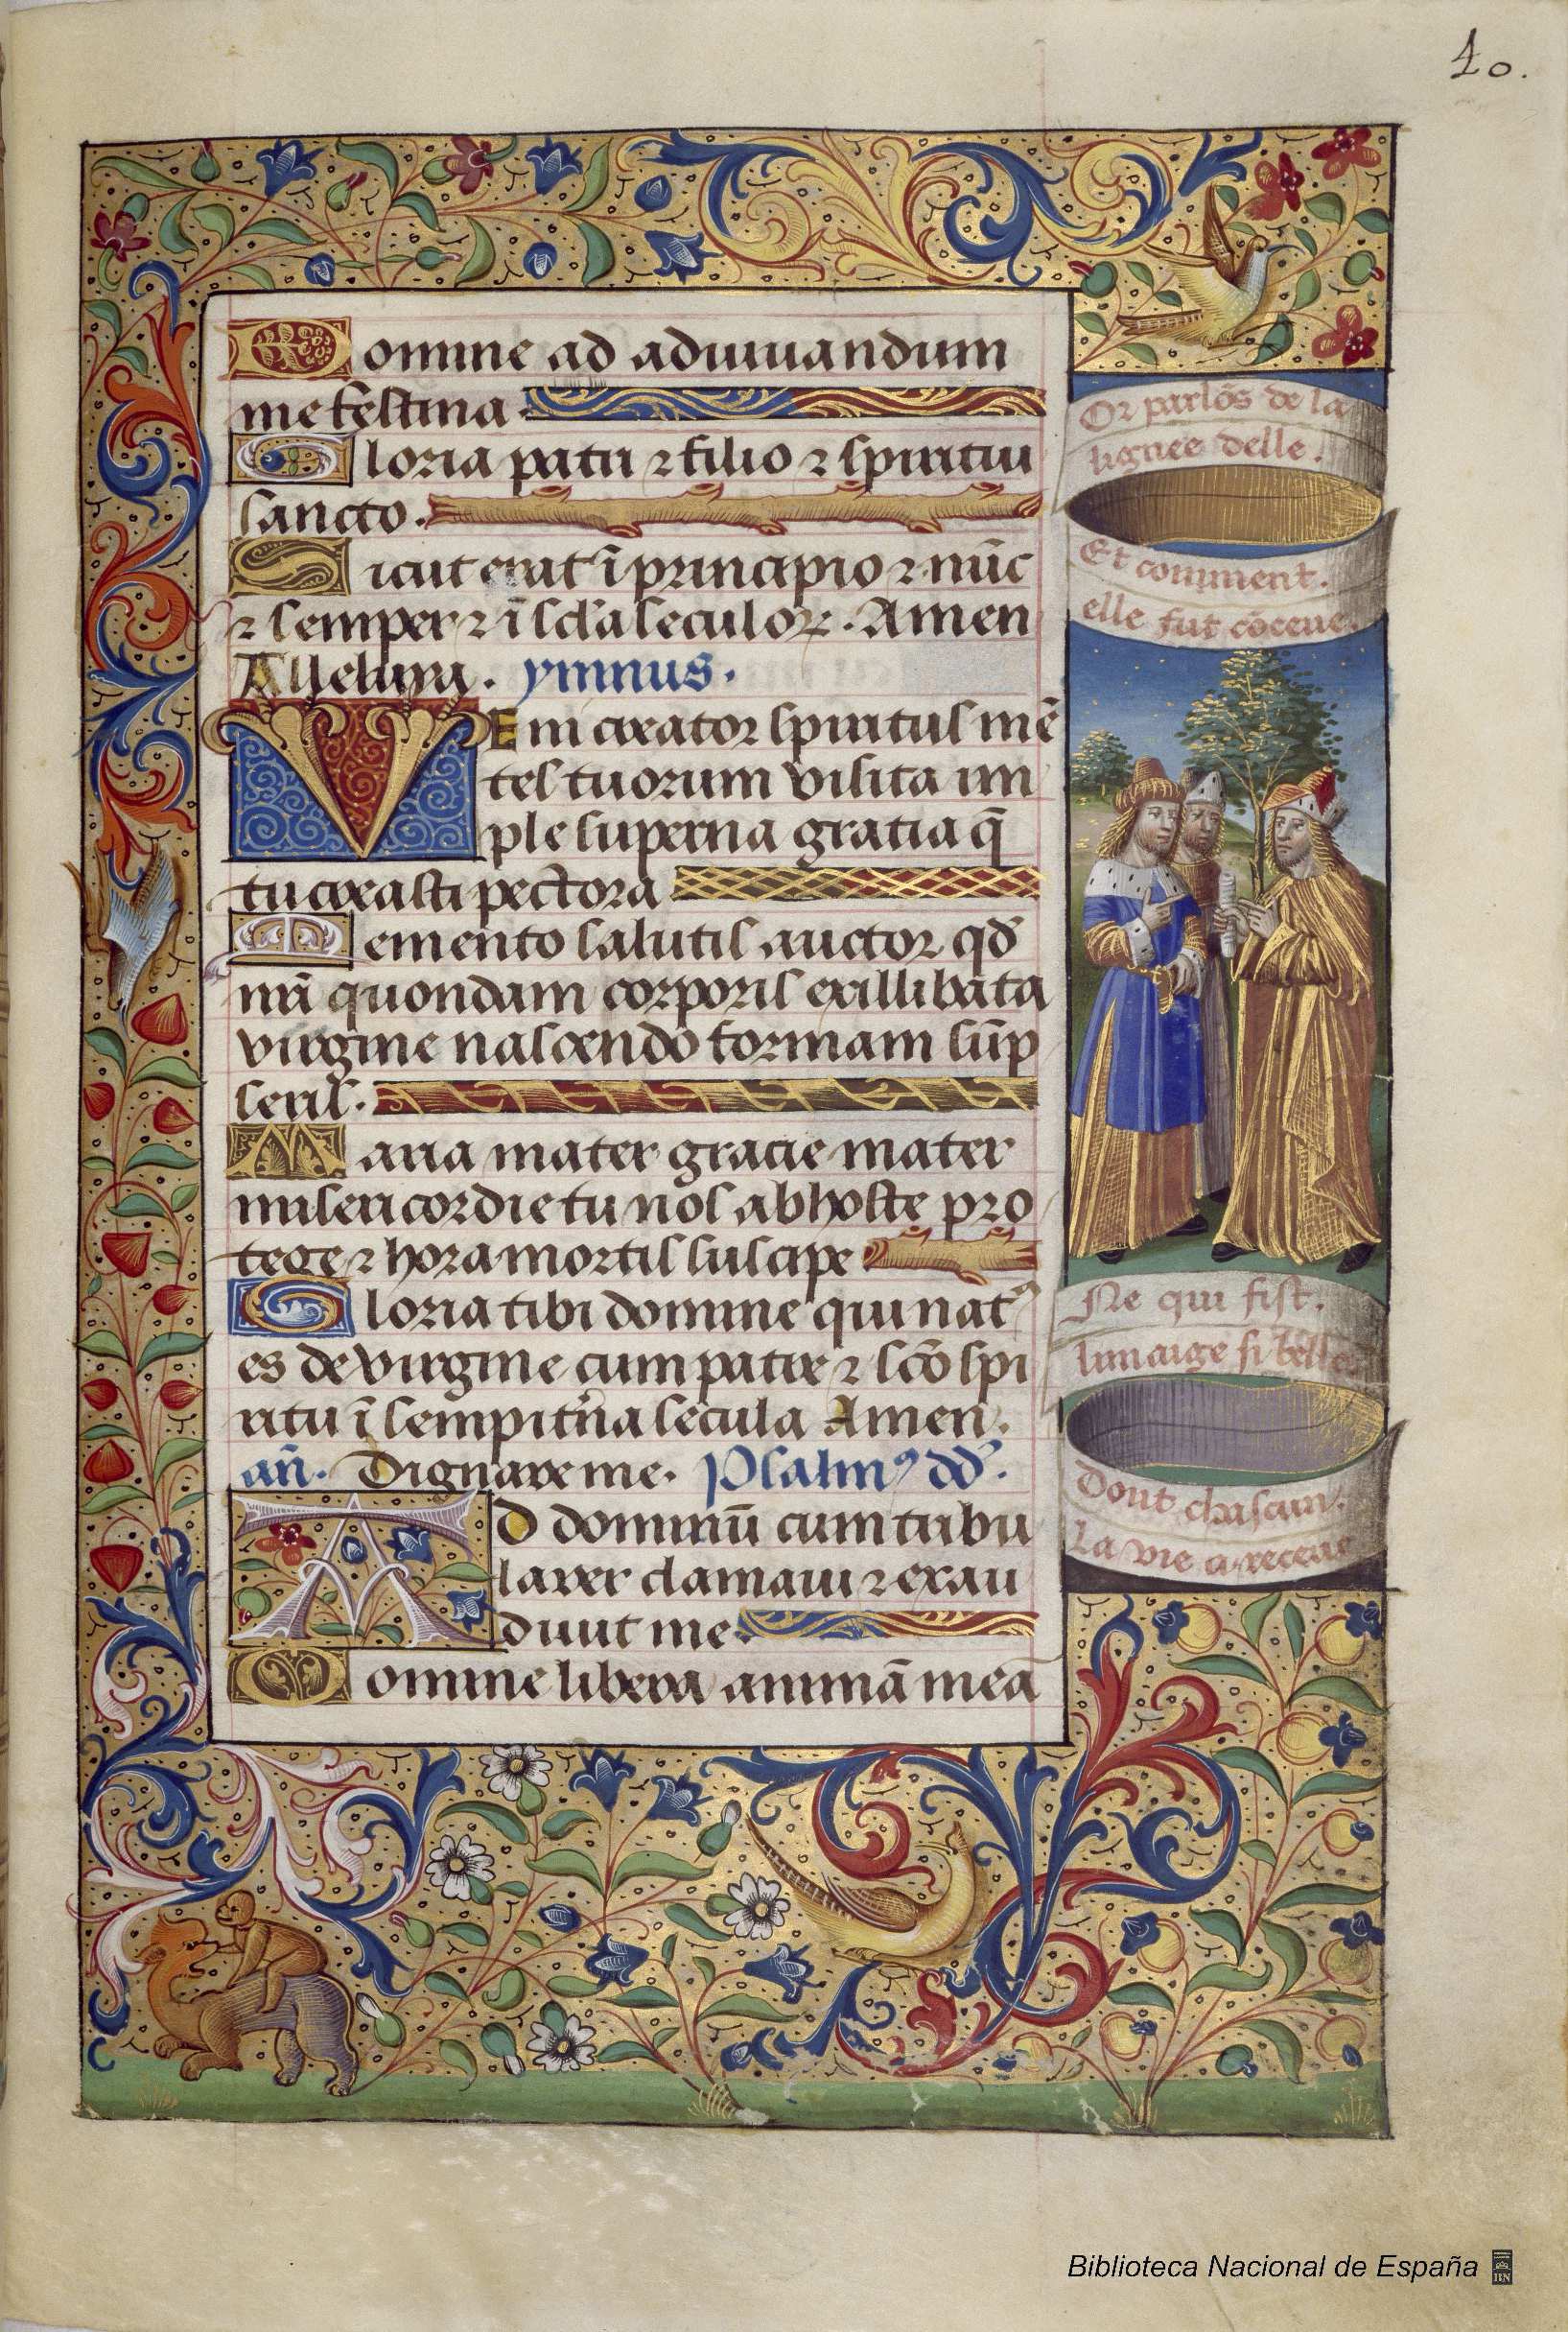 40.
Domine ad adiuuandum
me festina.
Gloria patri ⁊ filio ⁊ spiritui
sancto.
Sicut erat ī principio ⁊ nūc
⁊ semper ⁊ ī scl̄a seculoꝝ. Amen
Alleluya. ymnus.
VEni creator spiritus mē
tes tuorum visita im
ple superna gratia q̄
tu creasti pectora
Memento salutis auctor qd̄
nr̄i quondam corporis exillibata
virgine nascendo formam sūp
seris.
Maria mater gracie mater
misericordie tu nos ab hoste pro
tege ⁊ hora mortis suscipe
Gloria tibi domine qui natꝰ
es de virgine cum patre ⁊ sc̄o spi
ritu ī sempit̄na secula Amen.
an̄. Dignare me. Psalmꝰ dd̄.
AD dominū cum tribu
larer clamaui ⁊ exau
diuit me.
Domine libera animā meā
Or parlōs de la
lignee delle.
Et comment.
elle fut cōceue.
Ne qui fist.
limaige si belle
Dont chascun.
La vie a receue
Biblioteca Nacional de España
BN